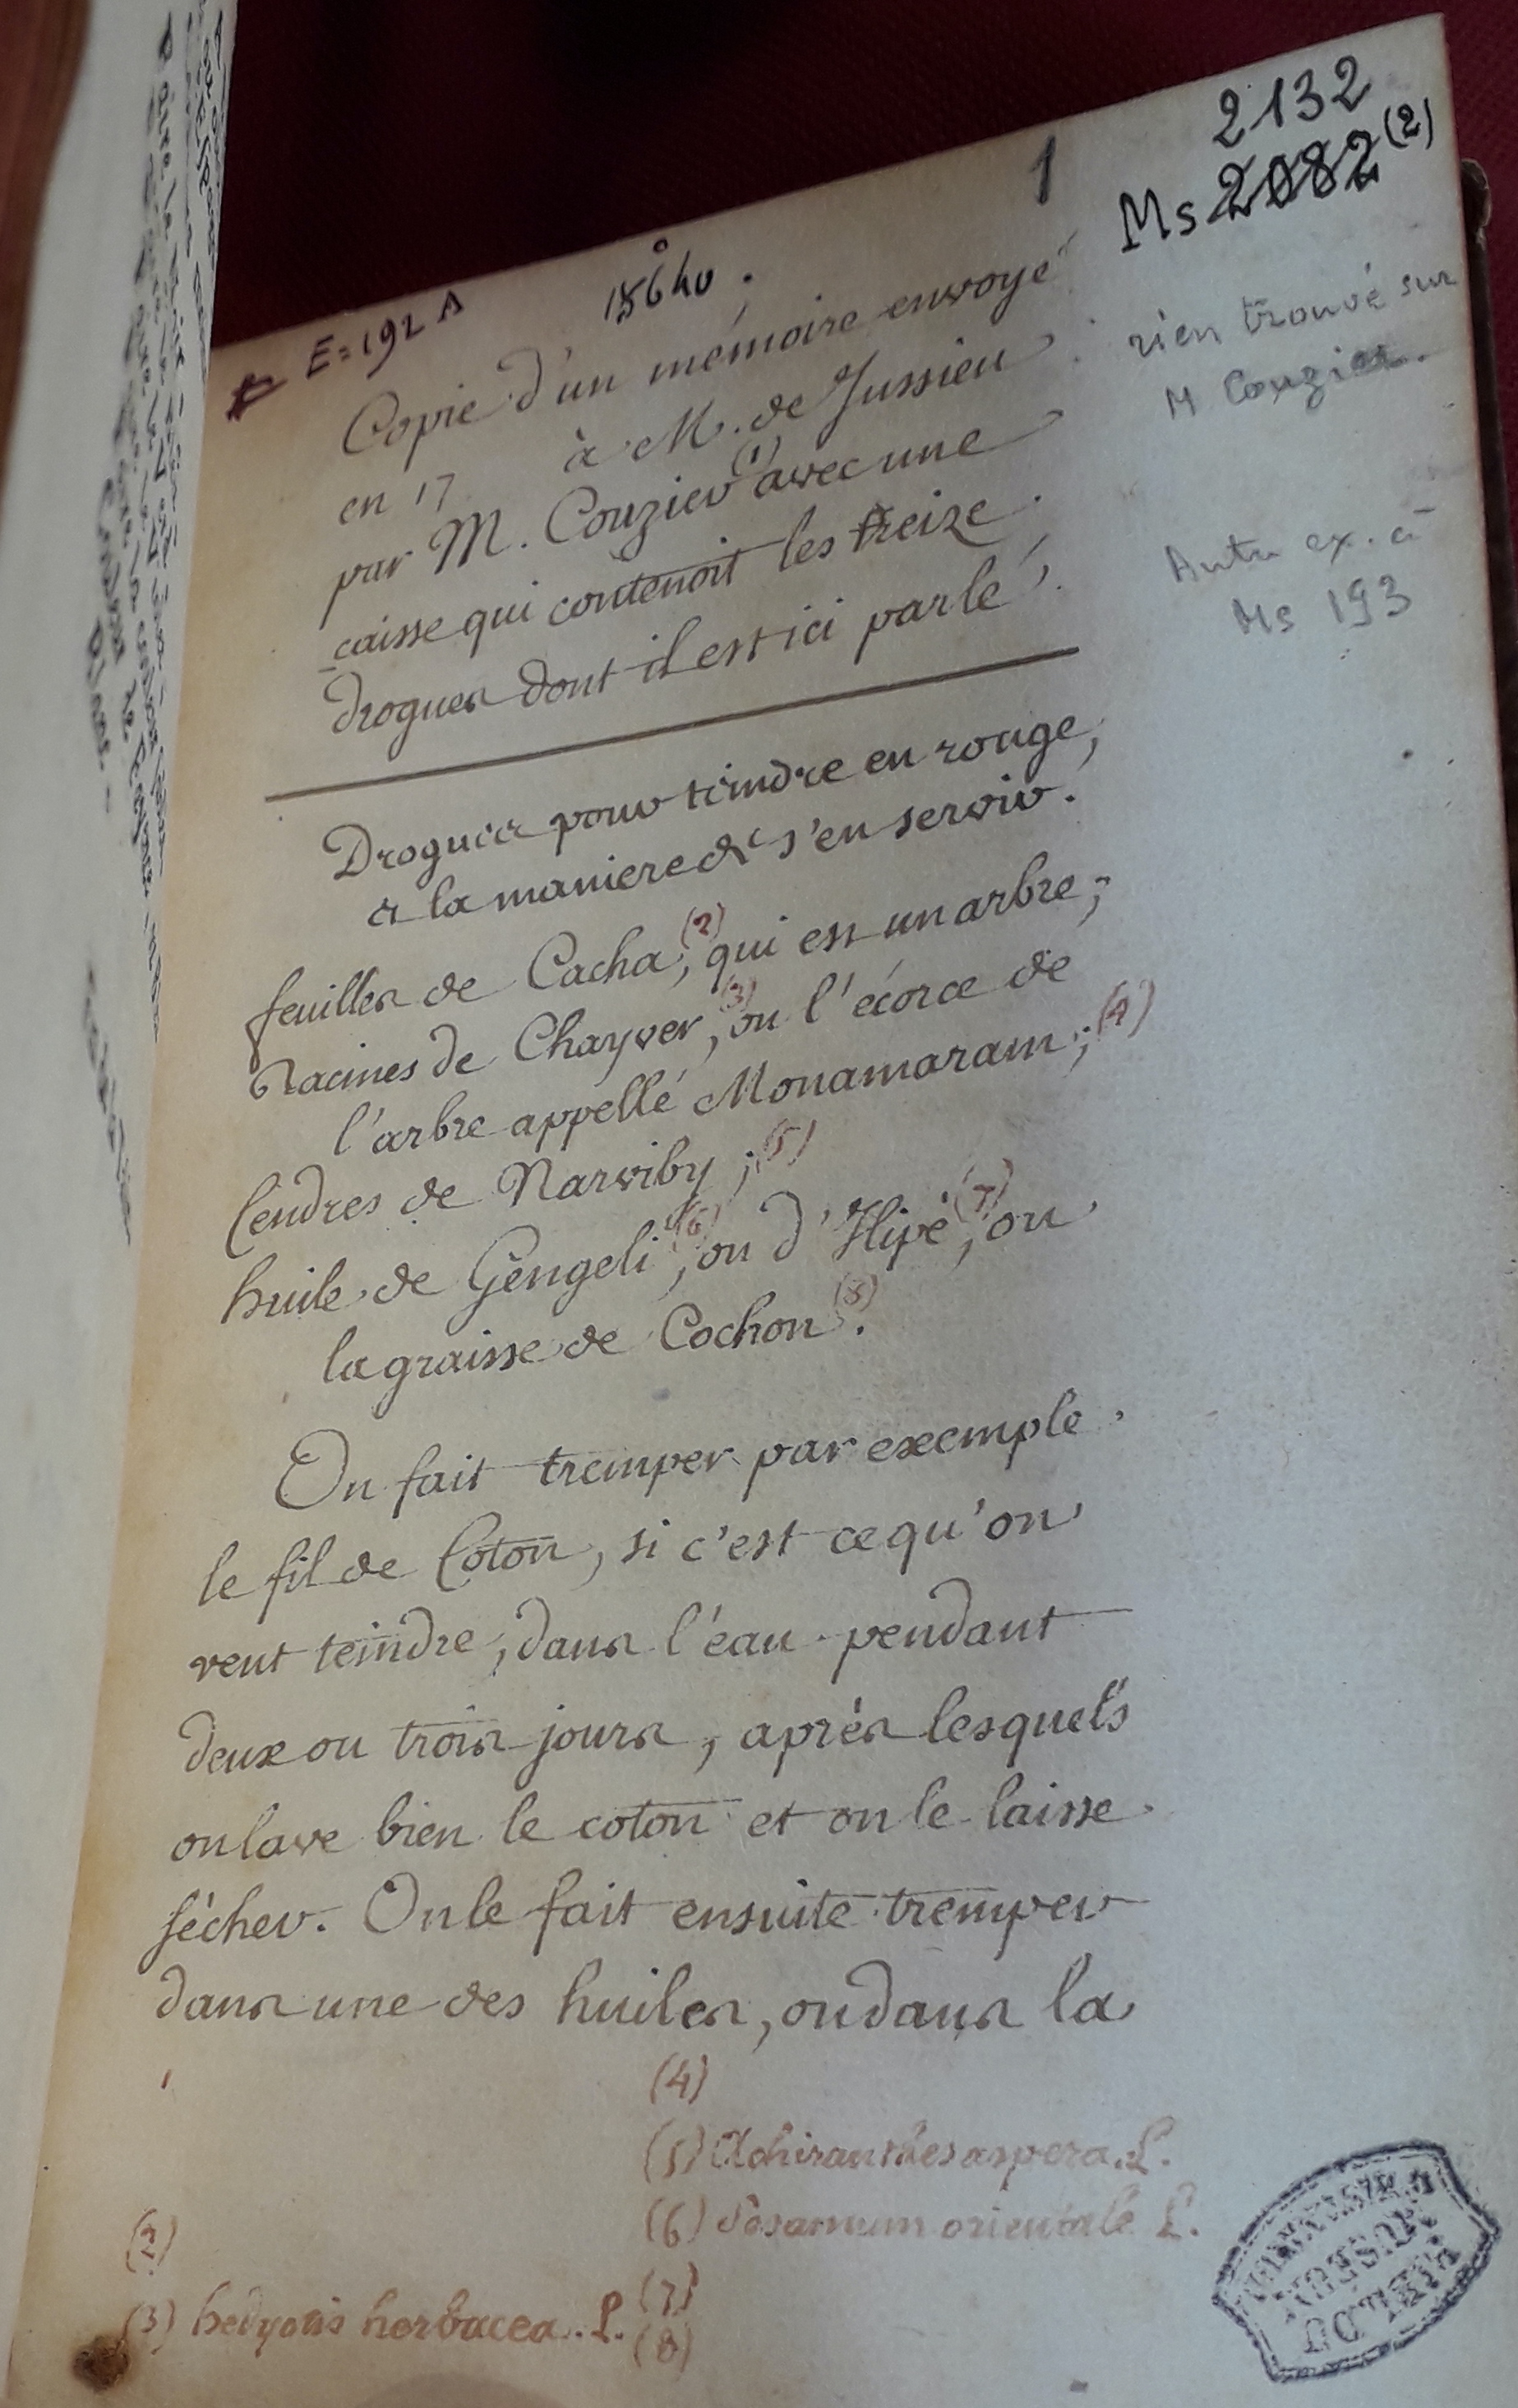 2132
Ms 2082 (2)
1
E=192 A
15640.
rien trouvé sur
M Couzier.
Copie d'un mémoire envoyé
en 17 à M. de Jussieu
par M. Couzier (1) avec une
caisse qui contenoit les treize
drogues dont il est ici parlé.
Autre ex. à
Ms 193
Drogues pour teindre en rouge,
& la maniere de s'en servir.
feuilles de Cacha, (2) qui est un arbre;
Racines de Chayver, (3) ou l'écorce de
l'arbre appellé Monamaram; (4)
Cendres de Narviby; (5)
huile de Gèngeli (6), ou d'Hipé (7), ou
la graisse de Cochon (8).
On fait tremper par exemple
le fil de Coton, si c'est ce qu'on
veut teindre, dans l'eau pendant
deux ou trois jours, après lesquels
on lave bien le coton et on le laisse
sécher. On le fait ensuite tremper
dans une des huiles, ou dans la
(4)
(5) Achiranthes aspera. L.
(6) Sesamum orientale L.
(2)
(7)
(3) hedyotis herbacea. L.
(8)